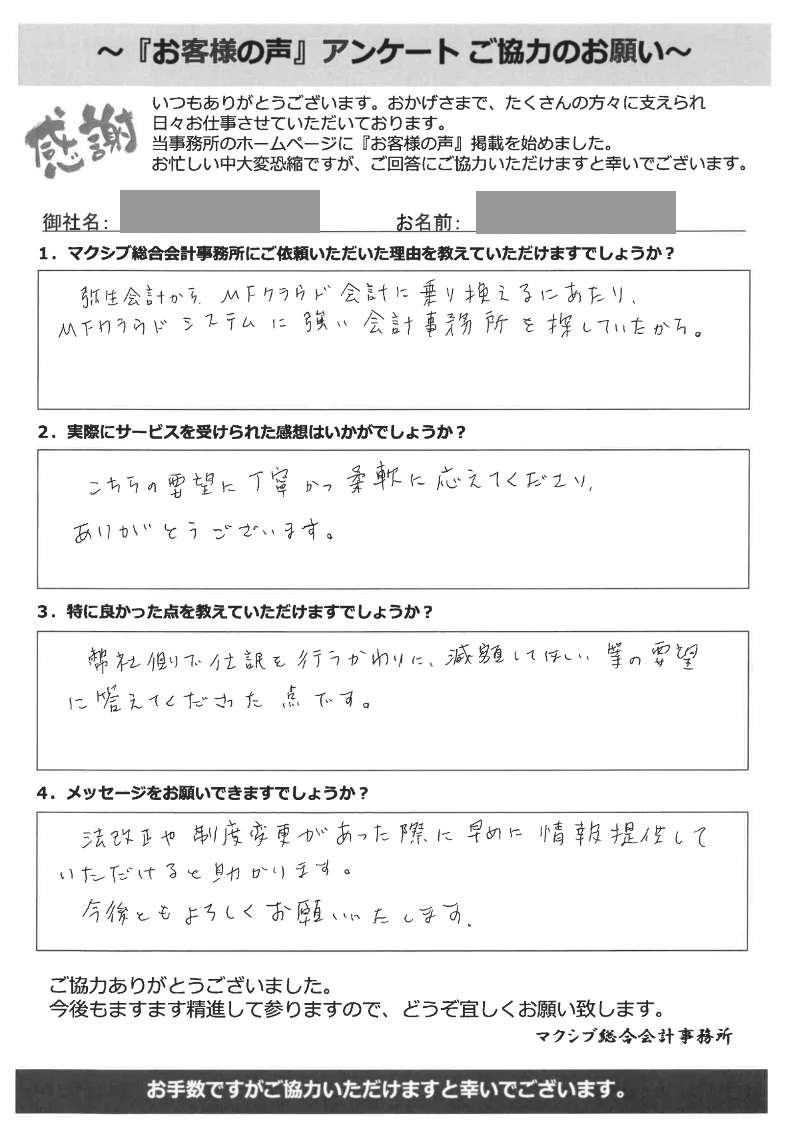 ～『お客様の声』アンケート ご協力のお願い～
感謝
いつもありがとうございます。おかげさまで、たくさんの方々に支えられ
日々お仕事させていただいております。
当事務所のホームページに『お客様の声』掲載を始めました。
お忙しい中大変恐縮ですが、ご回答にご協力いただけますと幸いでございます。
御社名： お名前：
1．マクシブ総合会計事務所にご依頼いただいた理由を教えていただけますでしょうか？
弥生会計から、MFクラウド会計に乗り換えるにあたり、
MFクラウドシステムに強い会計事務所を探していたから。
2．実際にサービスを受けられた感想はいかがでしょうか？
こちらの要望に丁寧かつ柔軟に応えてくださり、
ありがとうございます。
3．特に良かった点を教えていただけますでしょうか？
弊社側で仕訳を行うかわりに、減額してほしい等の要望
に答えてくださった点です。
4．メッセージをお願いできますでしょうか？
法改正や制度変更があった際に早めに情報提供して
いただけると助かります。
今後ともよろしくお願いいたします。
ご協力ありがとうございました。
今後もますます精進して参りますので、どうぞ宜しくお願い致します。
マクシブ総合会計事務所
お手数ですがご協力いただけますと幸いでございます。